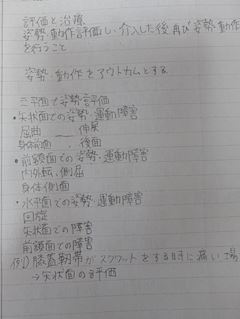 評価と治療
姿勢・動作評価し、介入した後再び姿勢・動作
を行うこと
姿勢・動作をアウトカムとする
三平面で姿勢評価
・矢状面での姿勢・運動障害
屈曲 ― 伸展
身体前面、後面
・前額面での姿勢・運動障害
内外転、側屈
身体側面
・水平面での姿勢・運動障害
回旋
矢状面での障害
前額面での障害
例1) 膝蓋靭帯がスクワットをする時に痛い場
→矢状面の評価